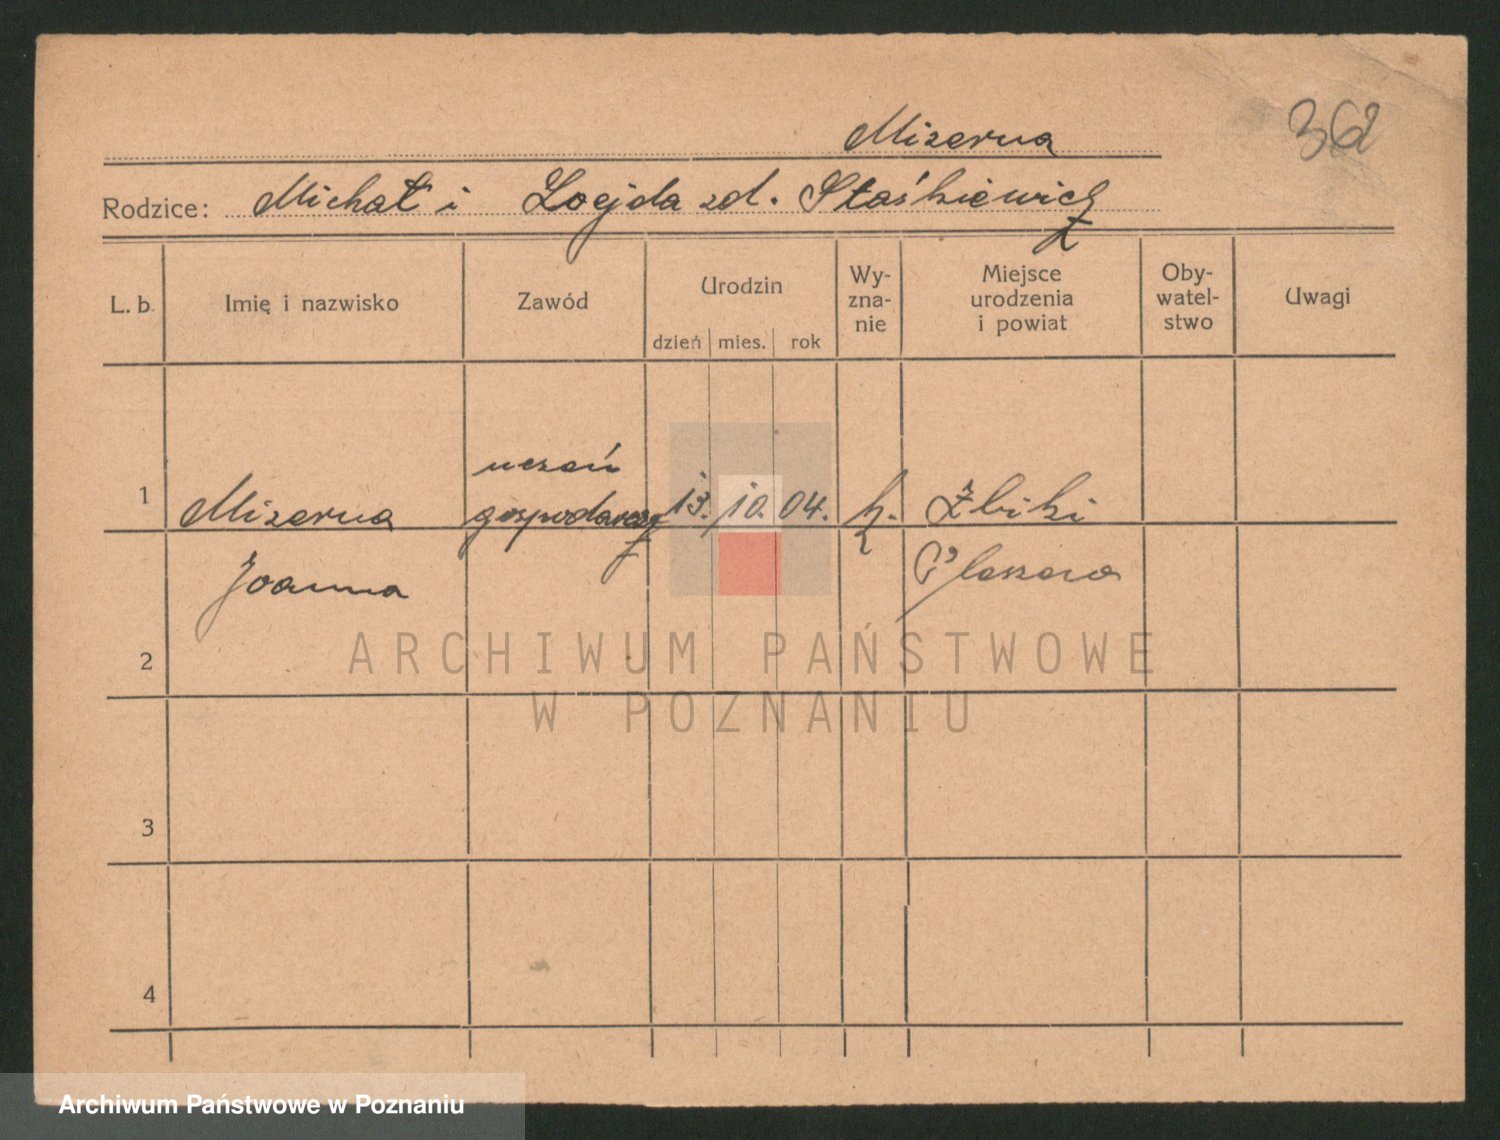 Mizerna 362
Rodzice: Michał i Zoejda zd. Staśkiewicz
L. b. Imię i nazwisko Zawód Urodzin dzień mies. rok Wy-zna-nie Miejsce urodzenia i powiat Oby-watel-stwo Uwagi
uczeń
1 Mizerna gospodarczy 13. 10. 04. k. Żbiki
Joanna
2
3
4
ARCHIWUM PAŃSTWOWE
W POZNANIU
Archiwum Państwowe w Poznaniu